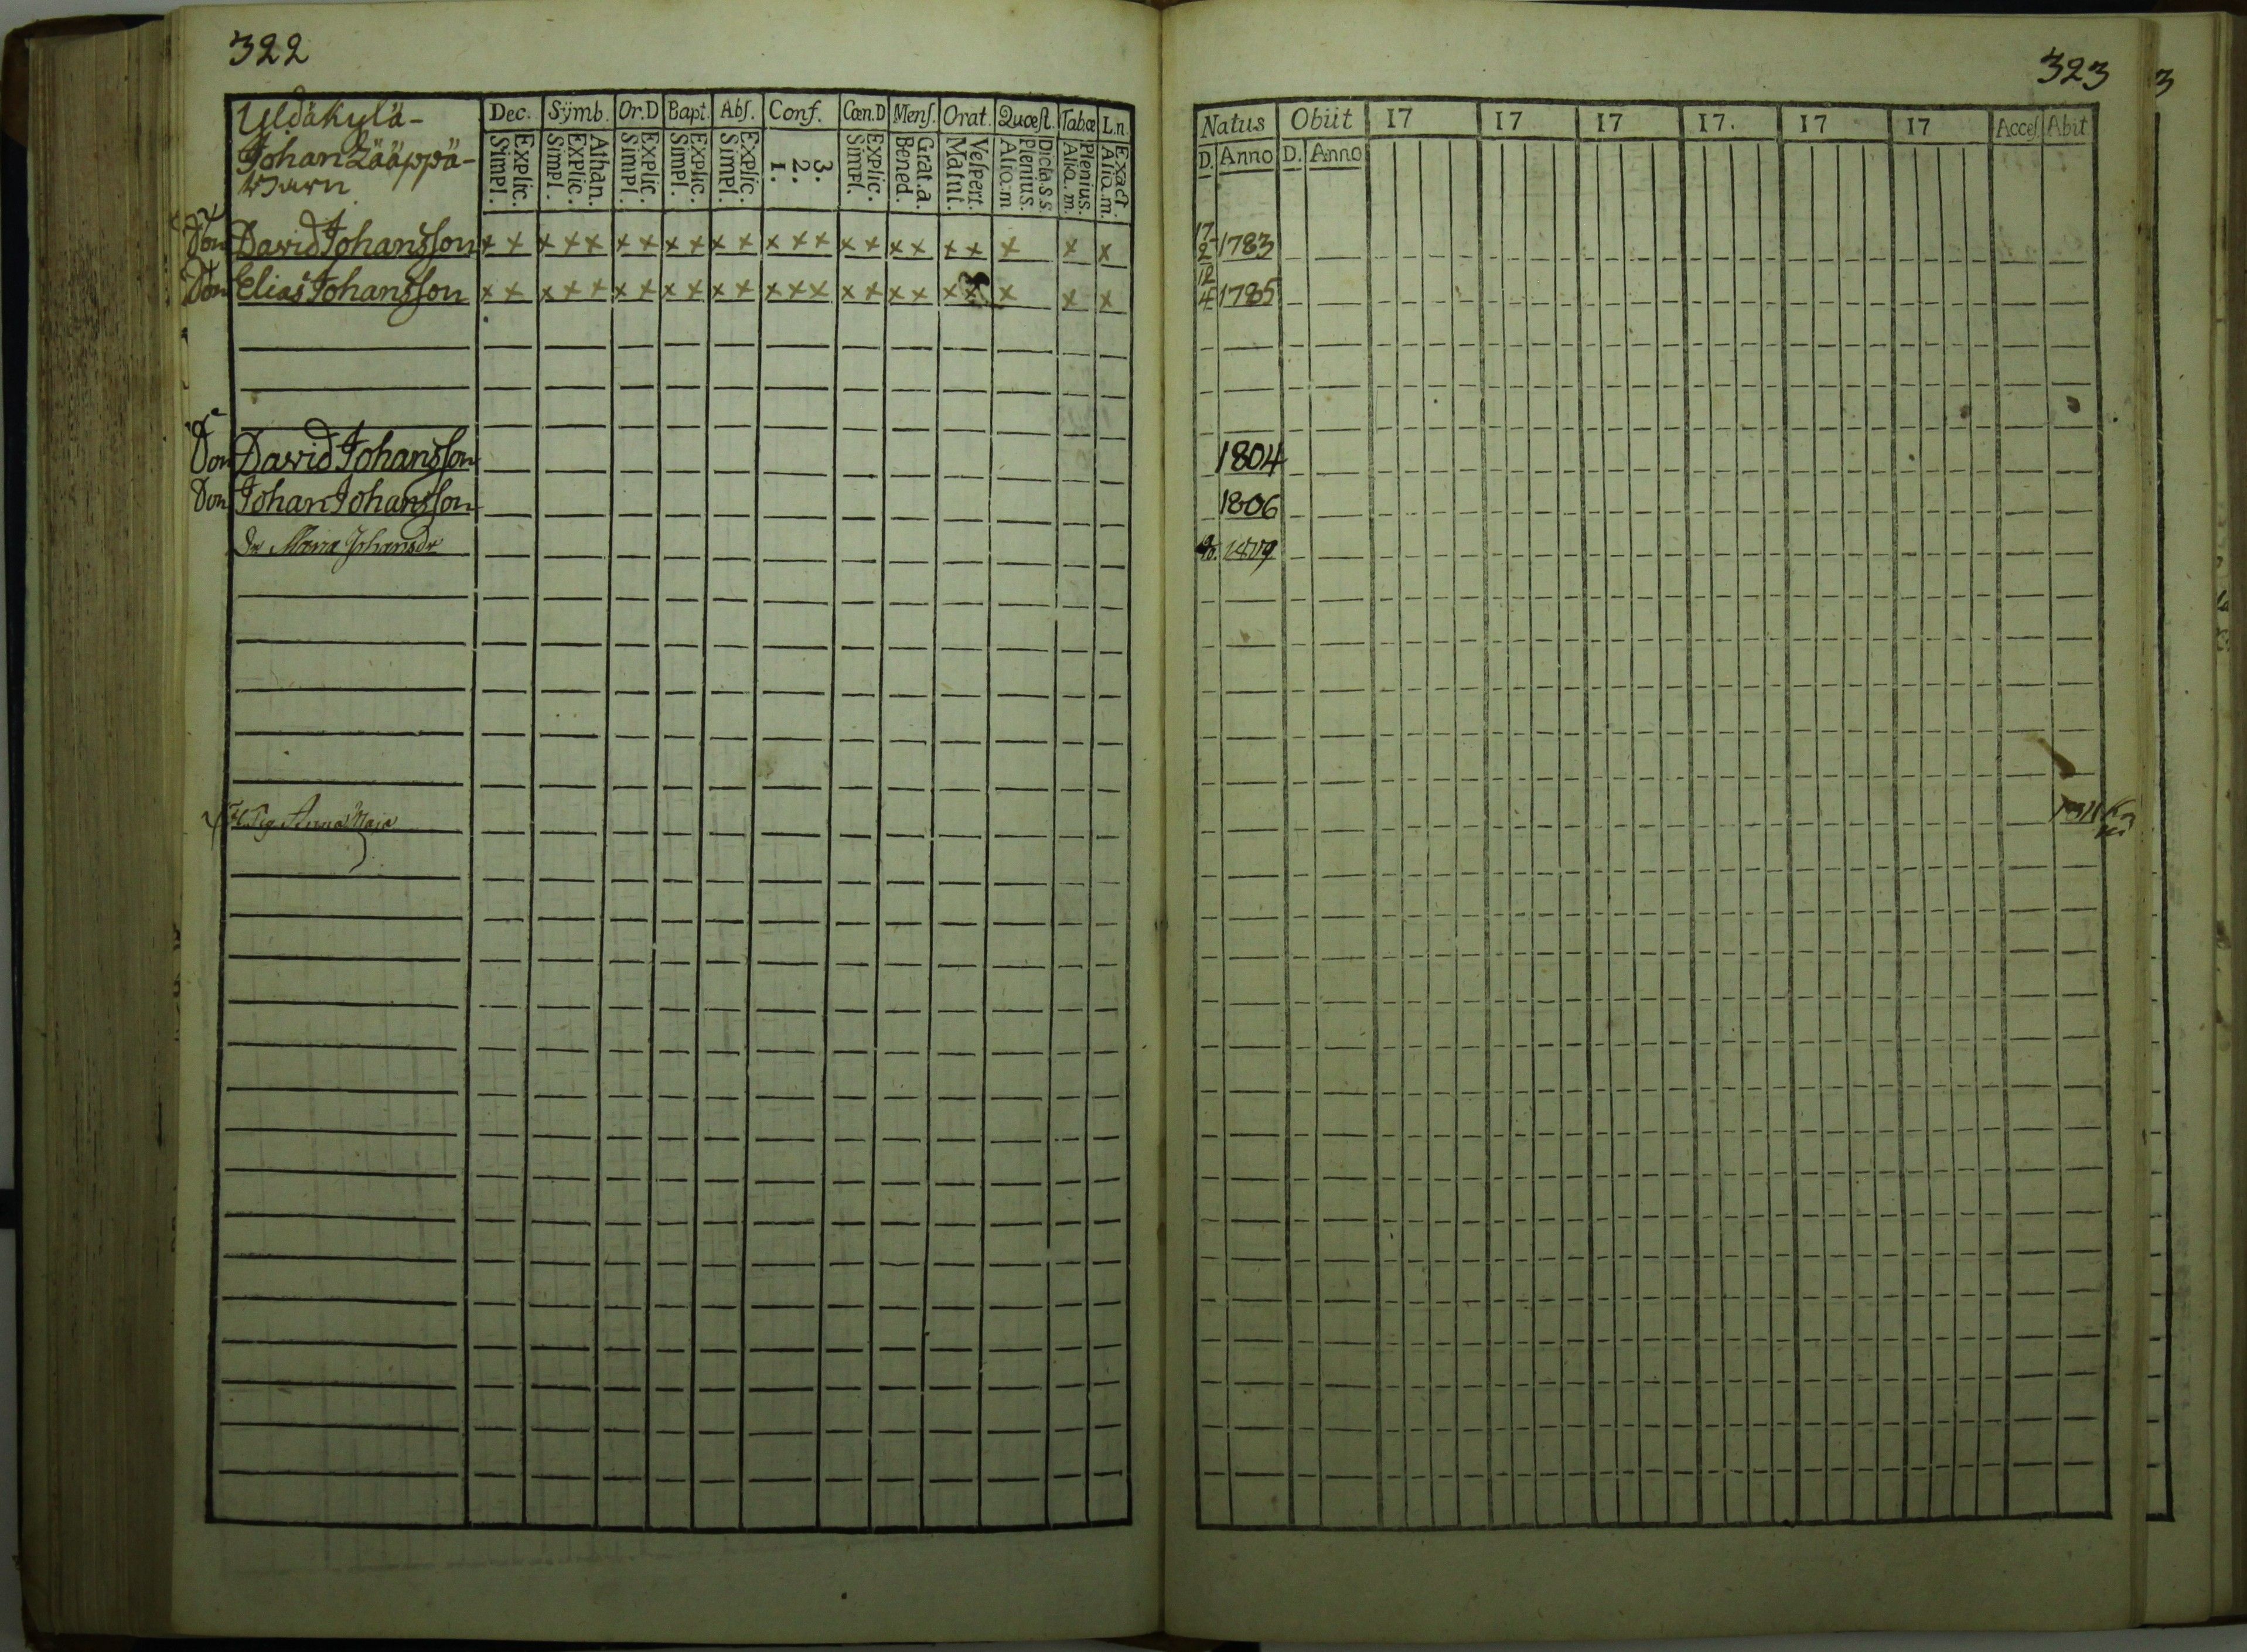 322
Yldäkylä-
Johan Lääppä-
Barn
Dec. Sÿmb. Or.D Bapt. Abſ. Conf. Cœn.D Menſ. Orat. Quæſt. Tabæ L.n.
Simpl. Explic. Simpl. Explic. Athan. Simpl. Explic. Simpl. Explic. Simpl. Explic. 1. 2. 3. Simpl. Explic. Bened. Grat.a. Matut. Veſpert. Alio.m Plenius. Dicta.S.S. Alio.m. Plenius. Alio.m. Exact.
Son David Johansſon x x x x x x x x x x x x x x x x x x x x x x x
Son Elias Johansſon x x x x x x x x x x x x x x x x x x x x x x
Son David Johansſon
Son Johan Johansſon
Dr Maria Johansdr
Anna Maja
323
Natus Obiit 17 17 17 17. 17 17 Acceſ Abit
D. Anno D. Anno
17/2 1783
12/4 1785
1804
1806
3